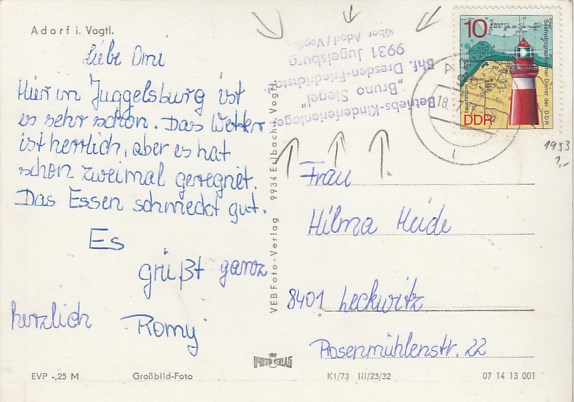 Adorf i. Vogtl.
Liebe Omi
Hier in Juggelsburg ist
es sehr schön. Das Wetter
ist herrlich, aber es hat
schon zweimal geregnet.
Das Essen schmeckt gut.
Es
grüßt ganz
herzlich Romy
EVP -,25 M Großbild-Foto
VEB Foto-Verlag 9934 Erlbach Vogtl.
Betriebs-Kinderferienlager
"Bruno Siegel"
Bhf. Dresden-Friedrichstadt
9931 Jugelsburg
über Adorf/Vogtl.
10
DDR
18.7
1953
1,-
Frau
Hilma Heide
8401 Leckwitz
Rosenmühlenstr. 22
K1/73 III/23/32 07 14 13 001